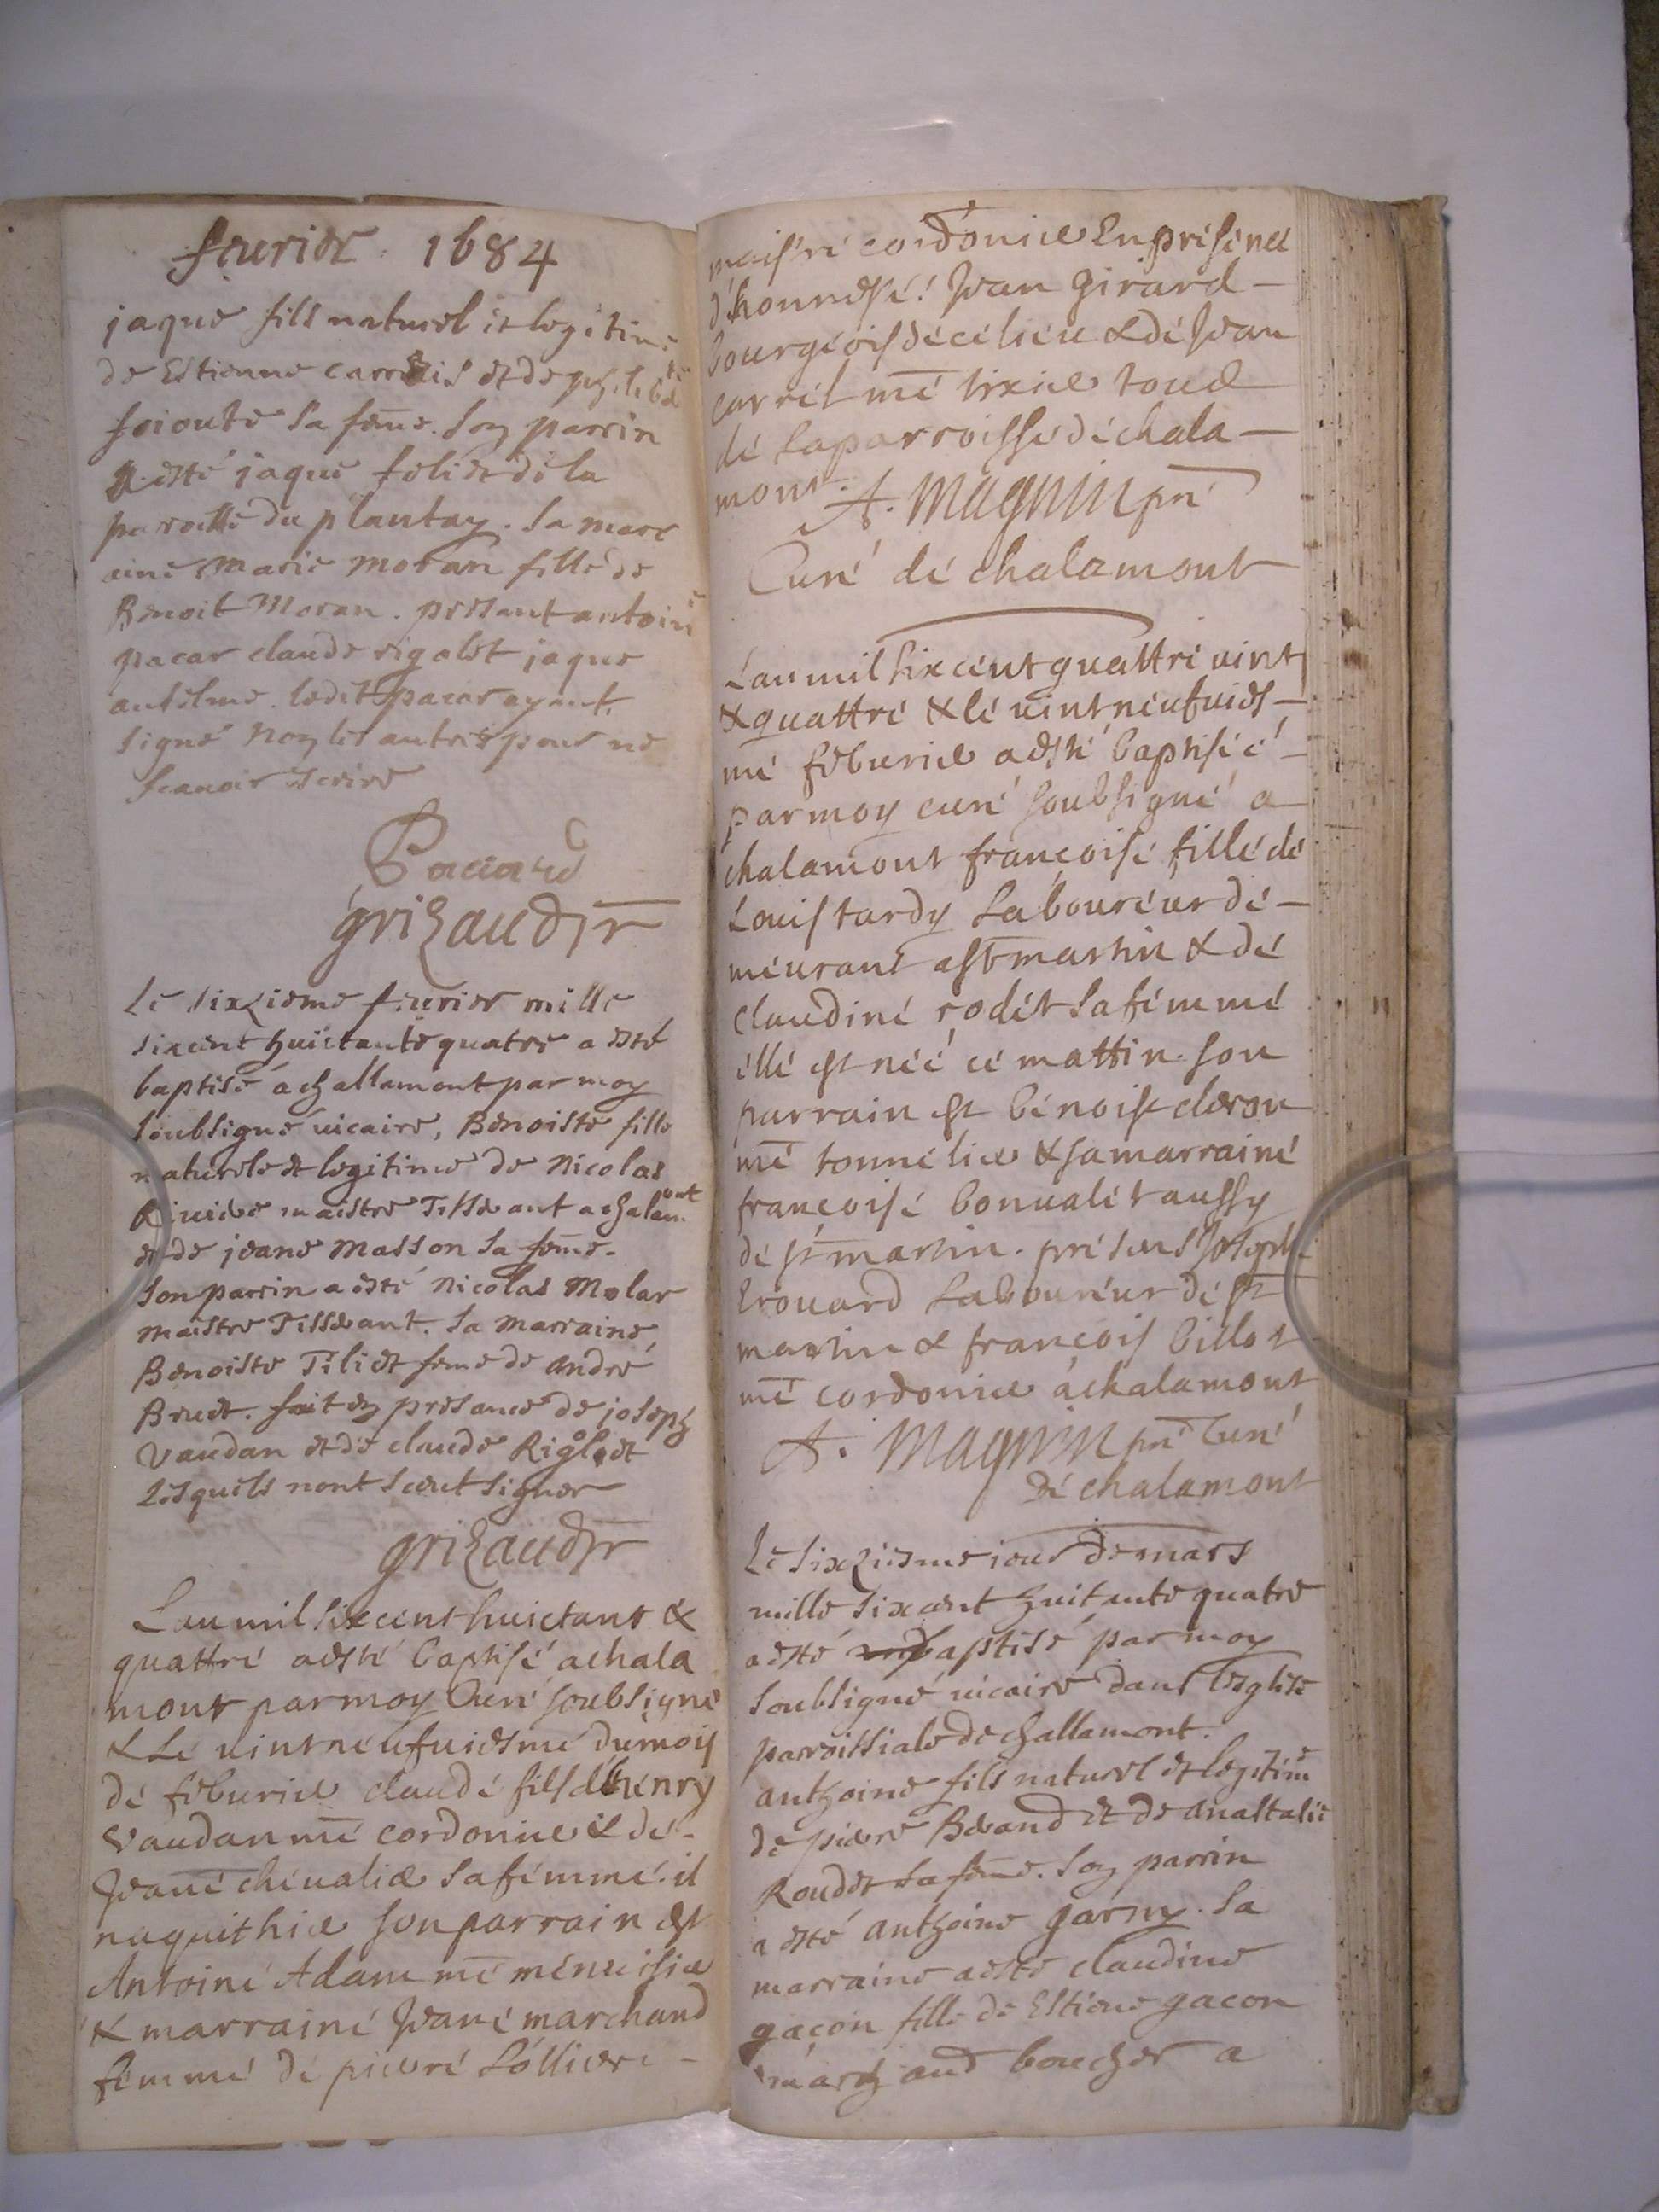 feurier 1684
jaque fils naturel et legitime
de Estienne carrois et de
foioute sa feme. son parrin
a esté jaque foliet de la
paroisse du plantay. sa marr
aine marie moran fille de
Benoit Moran. presant antoine
pacar claude rigolet jaque
antelme. ledit pacar ayant
signé non les autres pour ne
scauoir screire
Pacard
grizaud
Le sixziesme feurier mille
sixcent huictante quatre a esté
baptisé a challamont par moy
soubsigné uicaire, Benoiste fille
naturele et legitime de Nicolas
maistre Tissérant a chalamont
et de jeane Masson sa feme.
son parrin a esté Nicolas Molar
maistre Tisserant. sa marraine
Benoiste Tiliet feme de andré
Bruet. fait en presance de joseph
Vaudan et de claude Rigolet
lesquels nont sceut signer
grizaud
Lan mil six cent huictant &
quattre aesté baptisé a chala
mont par moy Curé soubsigné
& le uint neufuiesme du mois
de feburier claude fils dhenry
Vaudan mē cordonier & de
Jeane cheualier sa femme. il
naquit hier son parrain est
Antoine Adam mē menuisier
& marraine Jeane marchand
femme de pierre Sollier
maistre cordonier En presence
d'honneste Jean Girard
bourgeois de ce lieu & de Jean
carrel mē tixier tous
de la parroisse de chala
mont. A. Magnin
Curé de chalamont
Lan mil six cent quattre uint
& quattre & le uint neufuies
me feburier a esté baptisée
par moy curé soubsigné a
chalamont francoise fille de
Louis tardy Laboureur de
meurant a St martin & de
claudine rodet sa femme
elle est née ce mattin. son
parrain est benoist
mē tonnelier & sa marraine
francoise bonualet aussy
de St martin. presens Joseph
Erouard Laboureur de St
martin & francois billot
mē cordonier à chalamont
A. Magnin Curé
de chalamont
Le sixziesme iour de mars
mille sixcent huitante quatre
a esté baptisé par moy
soubsigné uicaire dans lesglise
parroissiale de challamont.
anthoine fils naturel et legitime
de pierre Beand et de anastasie
Roudet sa feme. son parrin
a esté anthoine garny. sa
marraine a esté claudine
gacon fille de Estiene gacon
marchand boucher a